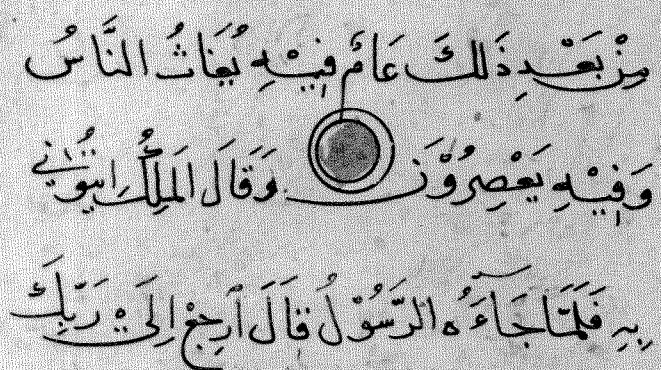 مِنْ بَعْدِ ذَلِكَ عَامٌ فِيْهِ يُغَاثُ النَّاسُ
وَفِيْهِ يَعْصِرُوْنَ وَقَالَ الْمَلِكُ ائْتُوْنِي
بِهِ فَلَمَّا جَآءَهُ الرَّسُوْلُ قَالَ ارْجِعْ اِلَىْ رَبِّكَ